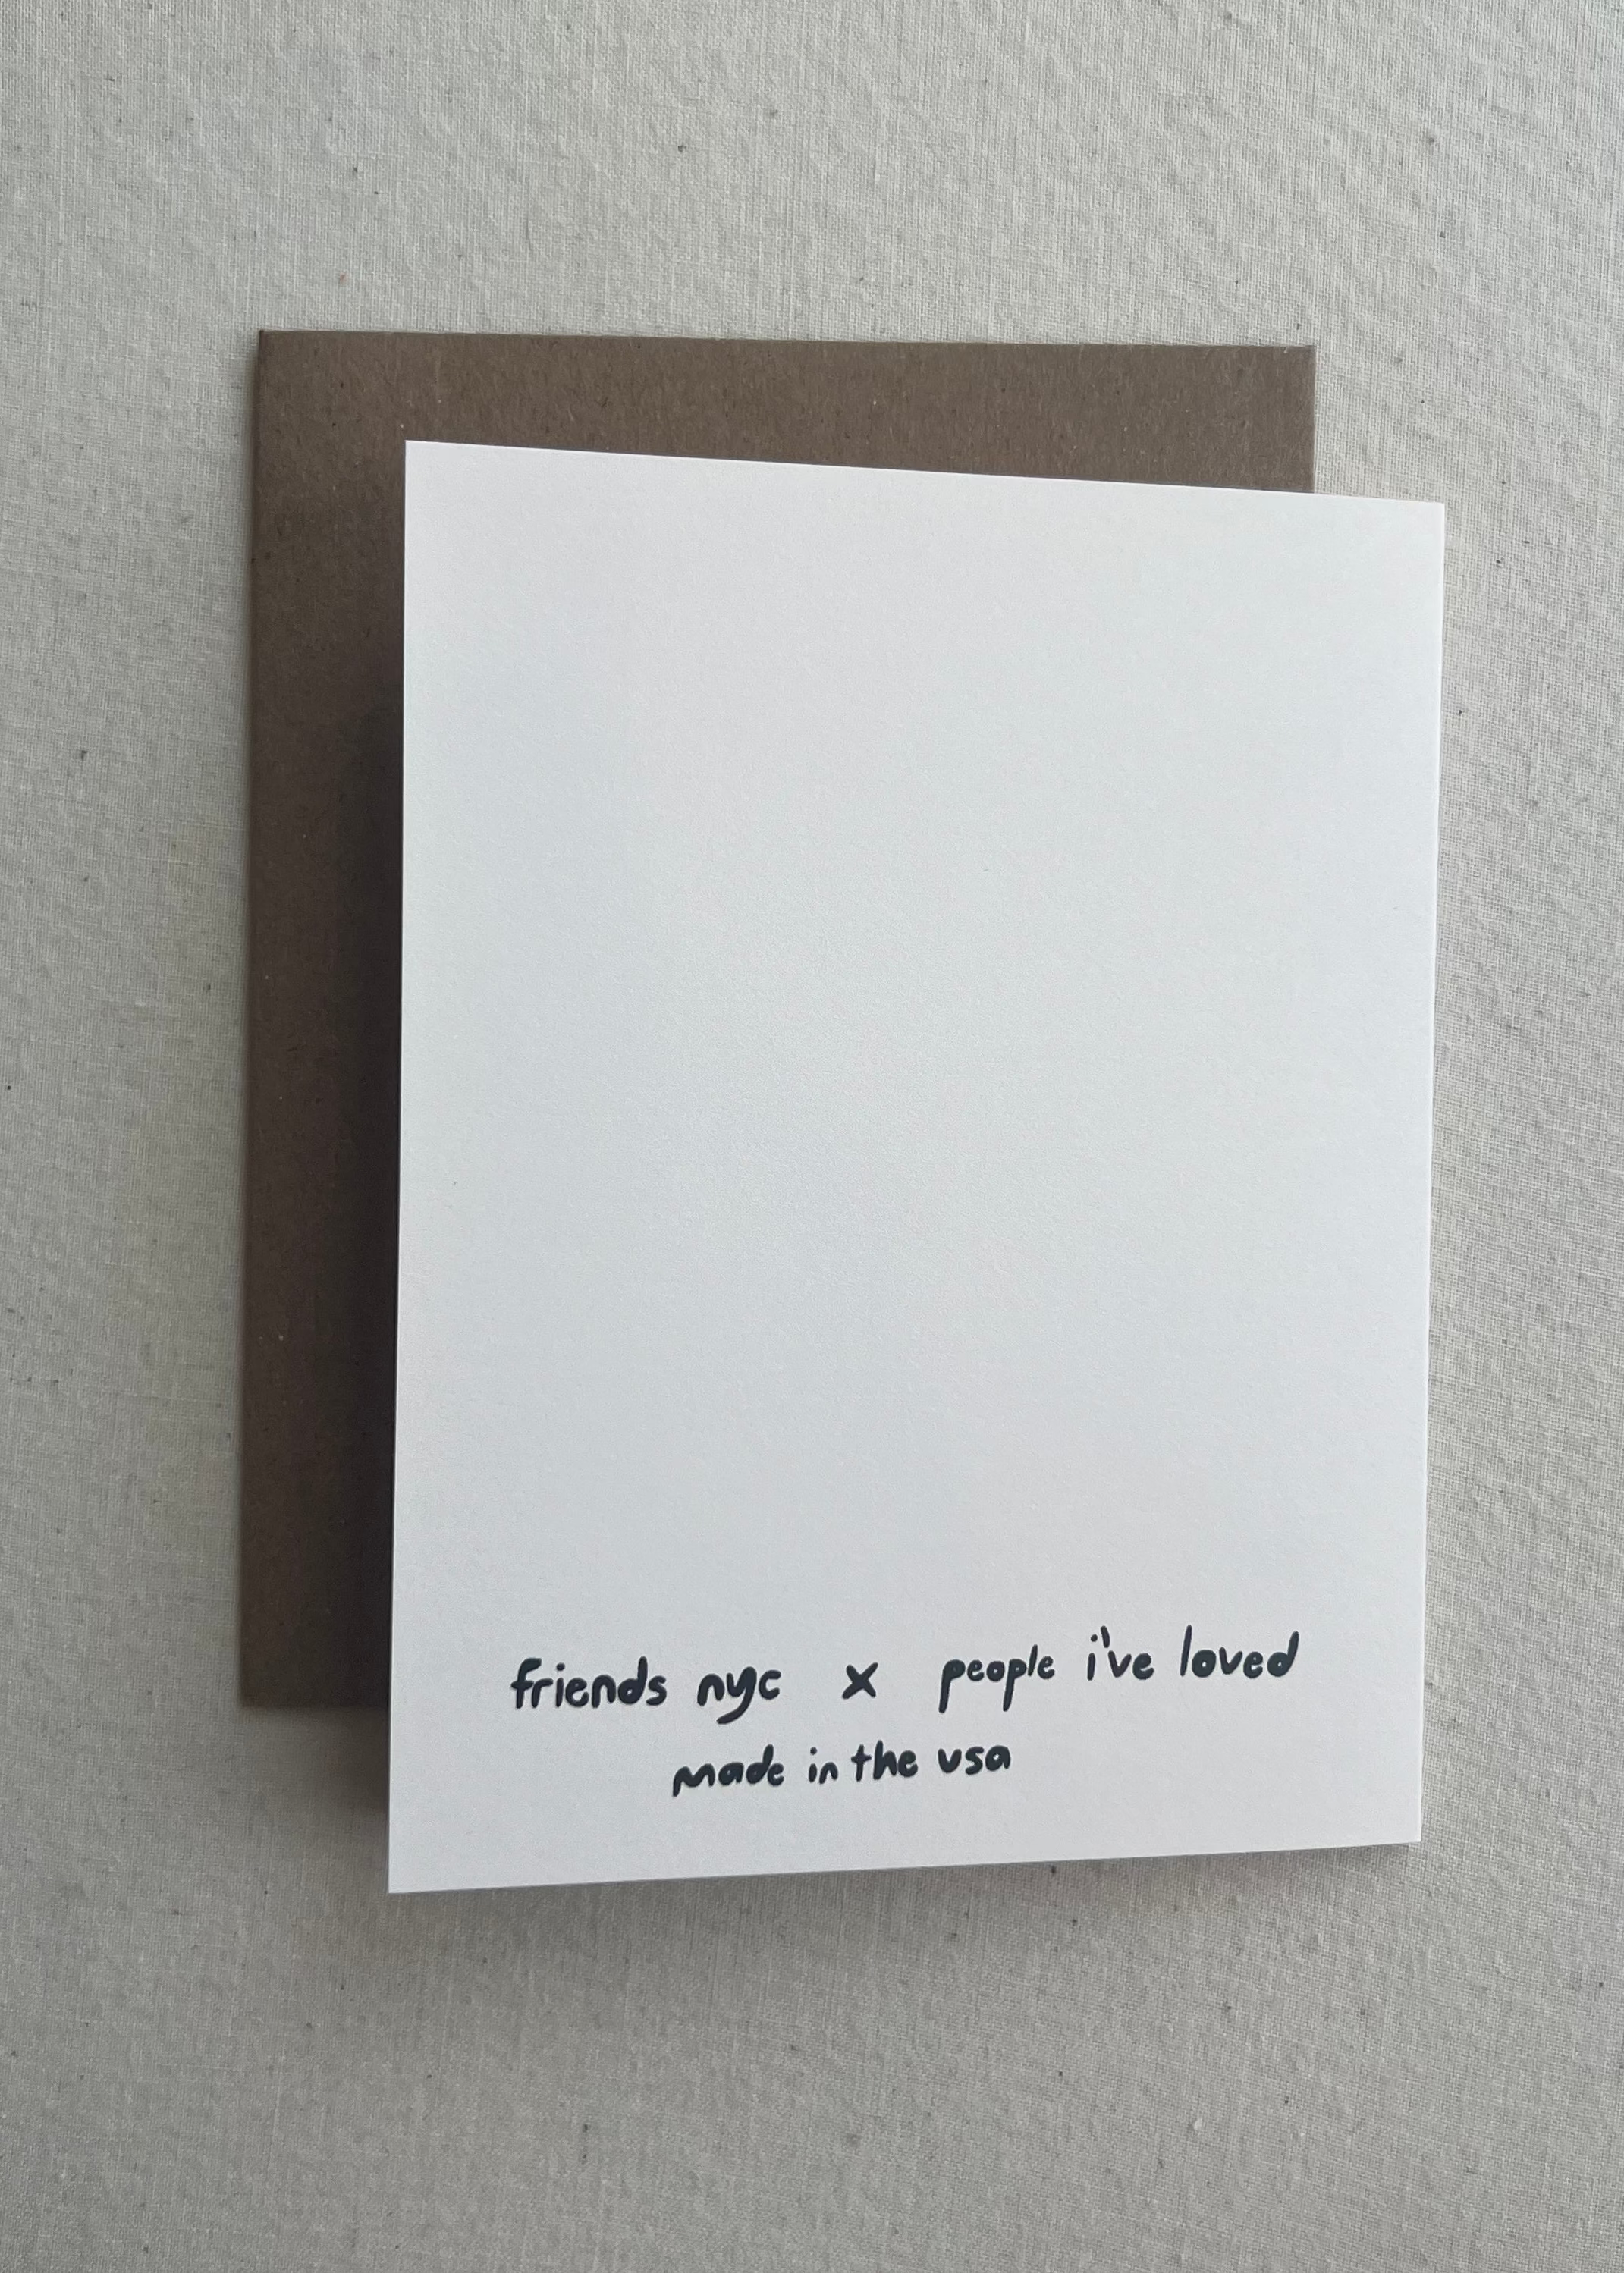 friends nyc x people i've loved
made in the usa